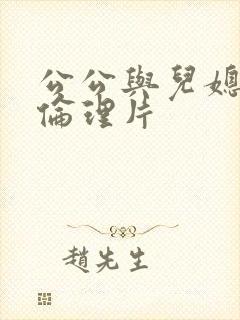 公公與兒媳
倫理片
趙先生